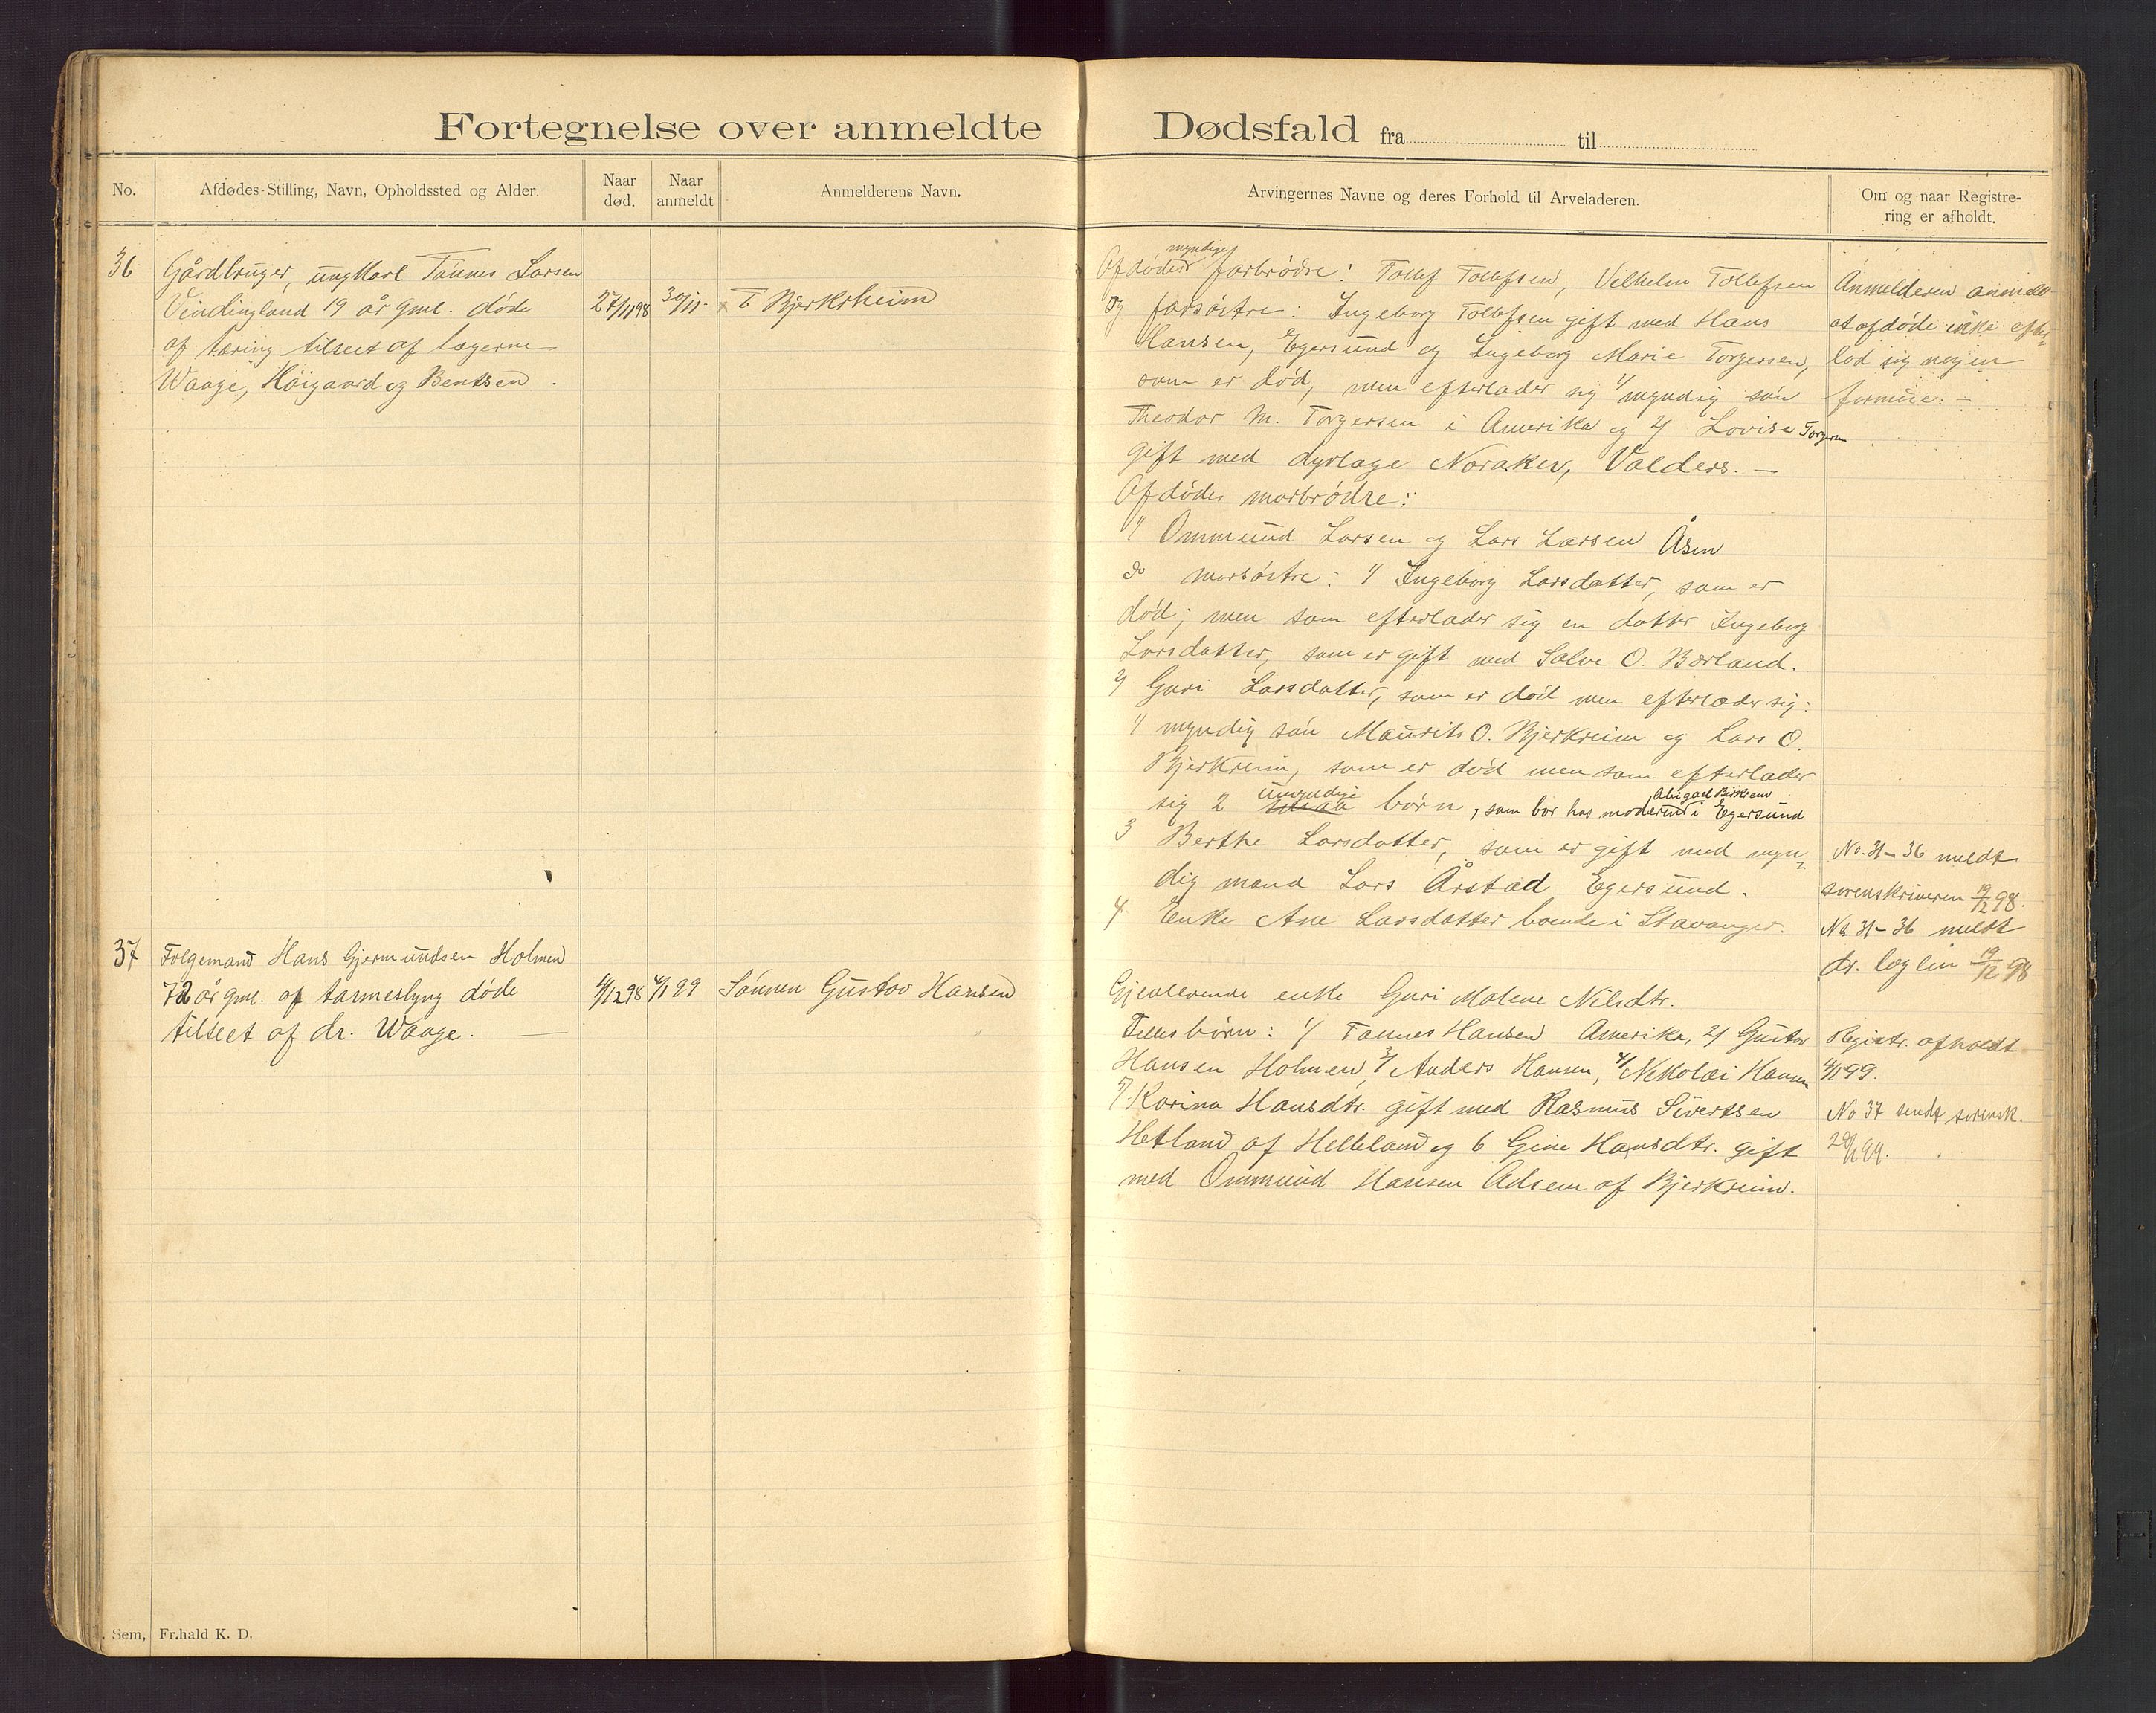 Fortegnelse over anmeldte Dødsfald fra til
No.
Afdødes Stilling, Navn, Opholdssted og Alder.
Naar død.
Naar anmeldt
Anmelderens Navn.
Arvingernes Navne og deres Forhold til Arveladeren.
Om og naar Registrering er afholdt.
36
Gårdbruger, ungkarl Tønnes Larsen
Vindingland 19 år gml. døde
af tæring tilseet af lægerne
Waage, Høigaard og Bentsen.
27/11 98
30/11-
x T Bjerkrheim
Afdødes myndige farbrødre: Tollef Tollefsen, Vilhelm Tollefsen
og farsøstre: Ingeborg Tollefsen gift med Hans
Hansen, Egersund og Ingeborg Marie Torgersen,
som er død, men efterlader sig 1/ myndig søn
Theodor M. Torgersen i Amerika og 2/ Lovise Torgersen
gift med dyrlæge Noraker, Valders. -
Afdødes morbrødre:
1/ Ommund Larsen og Lars Larsen Åsen
do morsøstre: 1/ Ingeborg Larsdatter, som er
død; men som efterlader sig en datter Ingeborg
Larsdatter, som er gift med Salve O. Børland.
2/ Guri Larsdatter, som er død men efterlader sig:
1/ myndig søn Maurits O. Bjerkreim og Lars O.
Bjerkreim, som er død men som efterlader
sig 2 umyndige børn, som bor hos moderen Abigael Birkrem i Egersund
3 Berthe Larsdatter, som er gift med myn-
dig mand Lars Årstad Egersund.
4 Enke Ane Larsdatter boende i Stavanger.
Anmelderen anmeldt
at afdøde ikke efter-
lod sig nogen
formue. -
No. 31-36 meldt
sorenskriveren 19/12 98.
No. 31-36 meldt
dr. 19/12 98
37
Følgemand Hans Gjermundsen Holmen
72 år gml. af tarmeslyng døde
tilseet af dr. Waage.
4/12 98
4/1 99
Sønnen Gustav Hansen
Gjenlevende enke Guri Malene Nilsdtr.
Fællesbørn: 1/ Tønnes Hansen Amerika, 2/ Gustav
Hansen Holmen, 3/ Anders Hansen, 4/ Nikolai Hansen
5/ Karina Hansdtr. gift med Rasmus Sivertsen
Hetland af Helleland og 6 Gine Hansdtr. gift
med Ommund Hansen Adsem af Bjerkreim.
Registr. afholdt
4/1 99.
No 37 sendt sorensk.
29/1 99.
Sem, Fr.hald K. D.